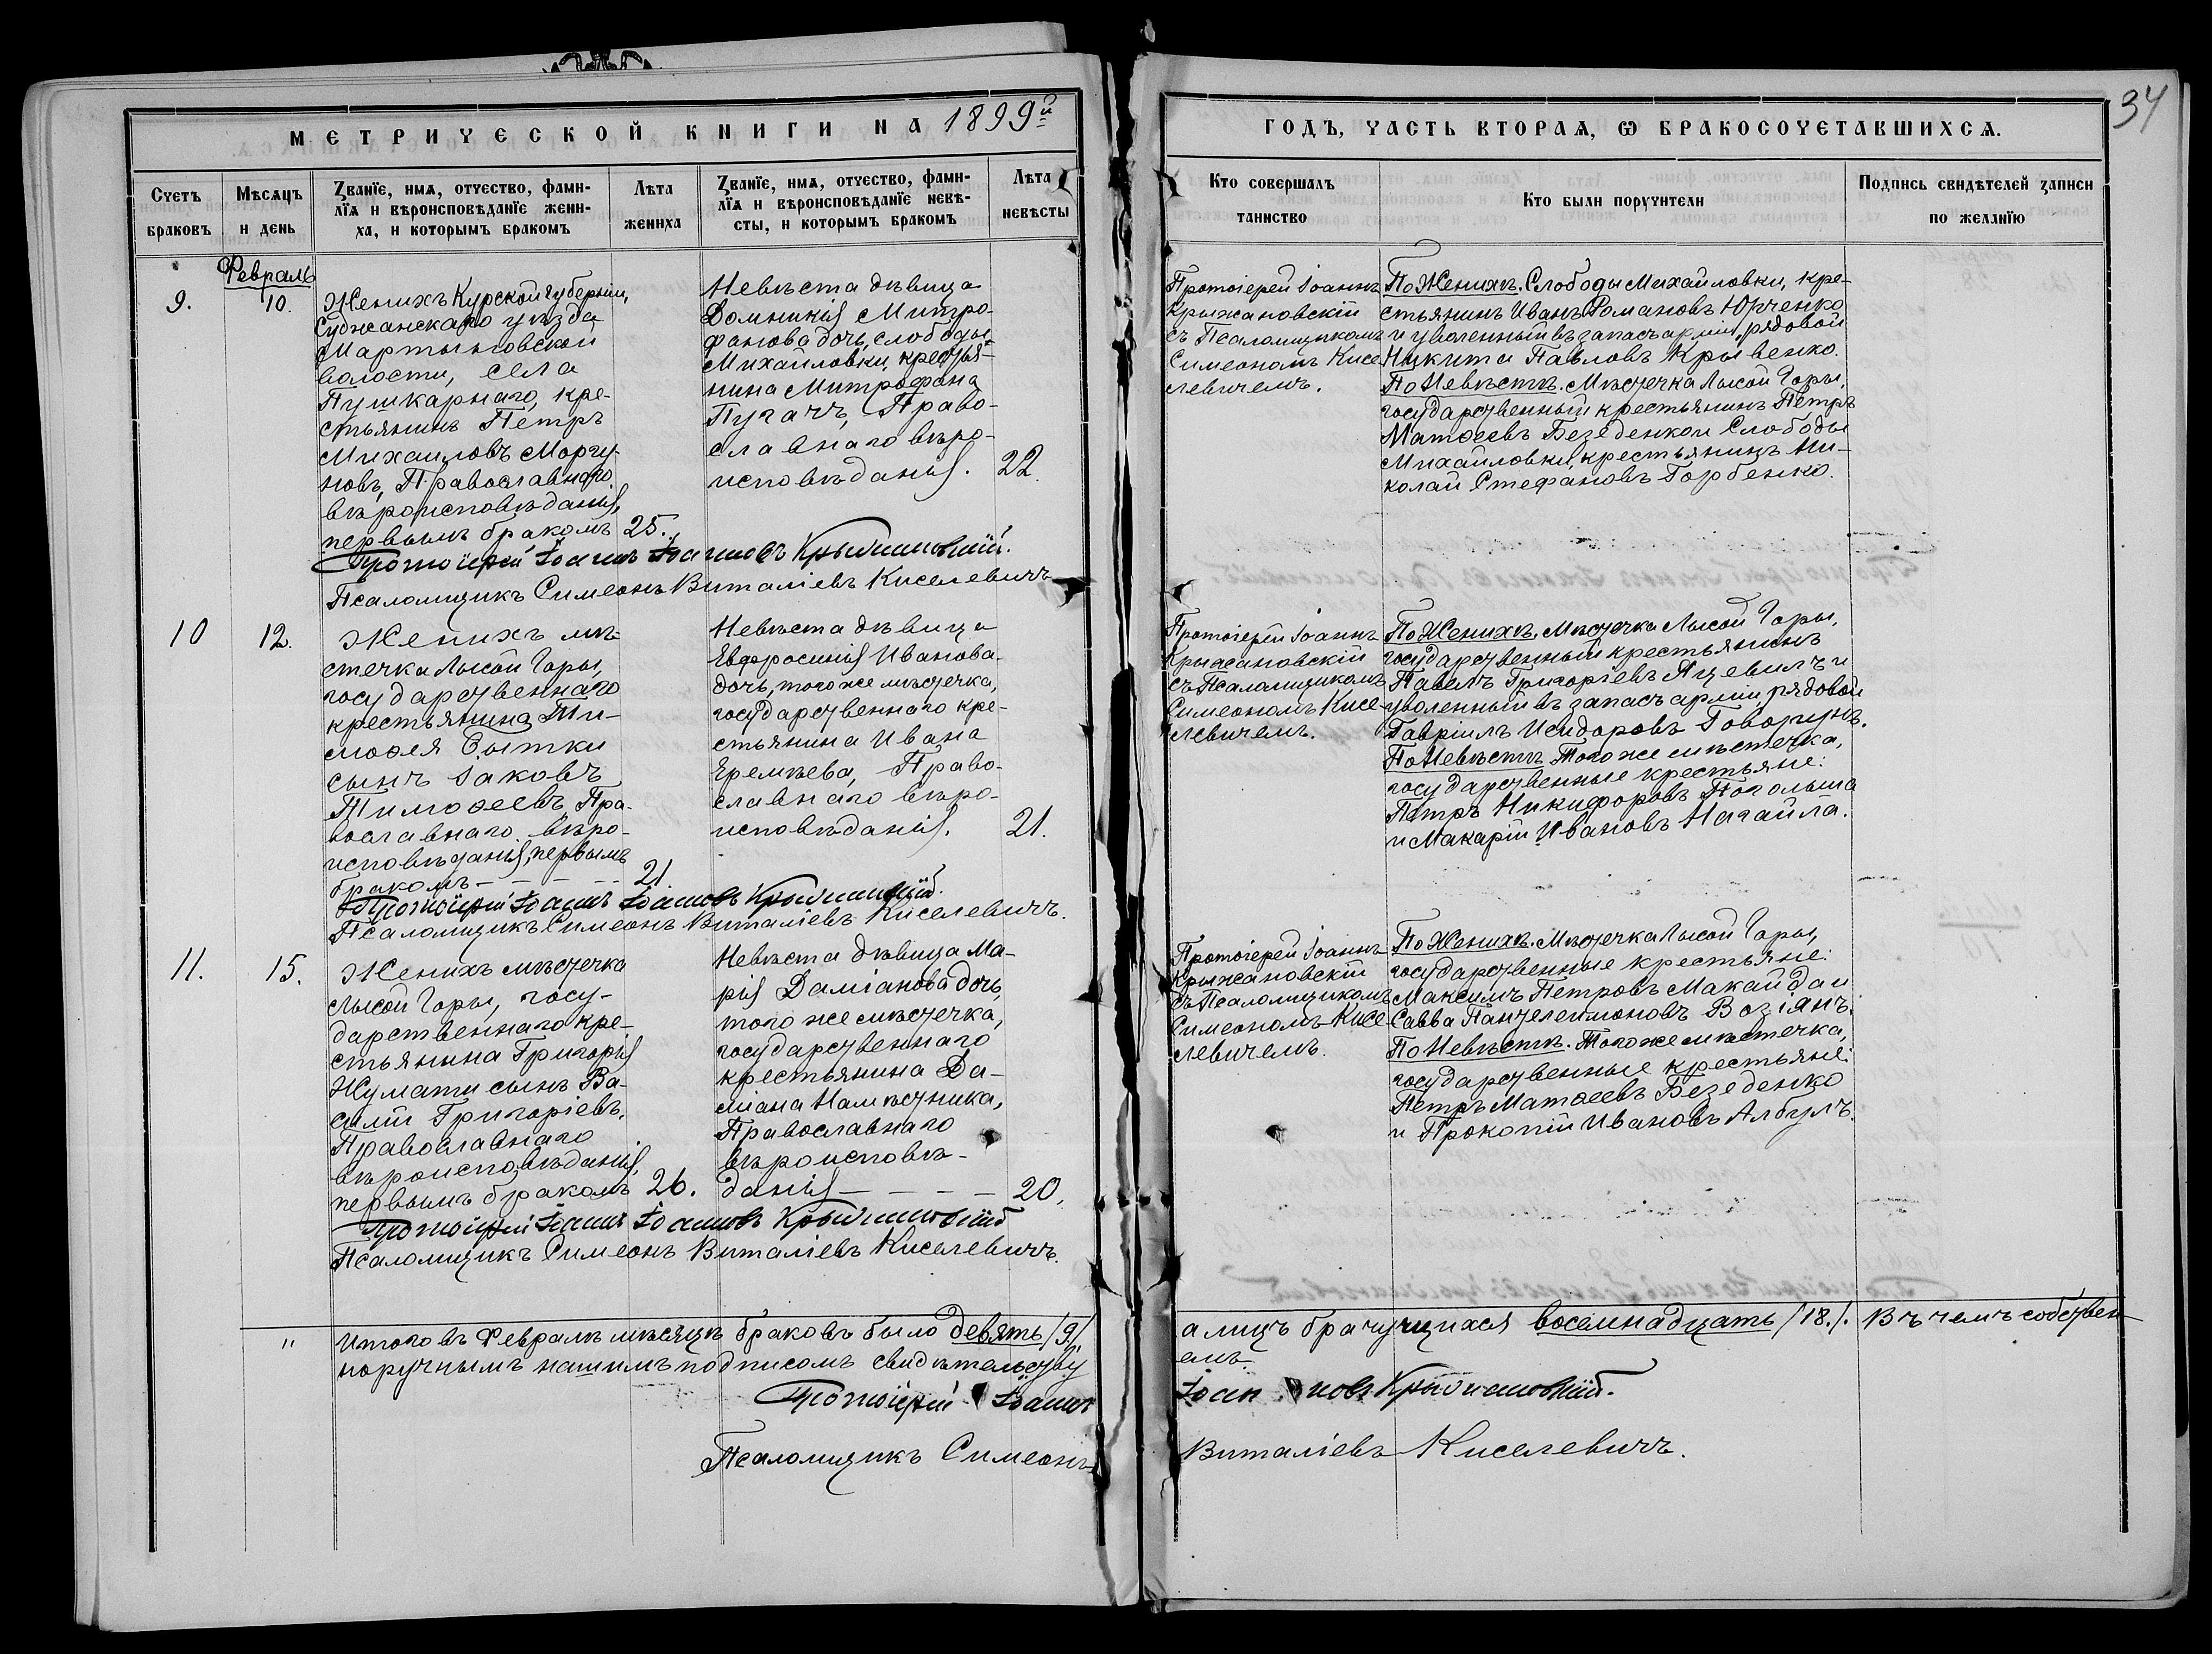 34
МЕТРИЧЕСКОЙ КНИГИ НА 1899й
ГОДЪ, ЧАСТЬ ВТОРАѦ, Ѡ БРАКОСОЧЕТАВШИХСѦ.
Счетъ браковъ
Мѣсѧцъ и день
Званїе, имѧ, отчество, фами-
лїѧ и вѣроисповѣданїе жени-
ха, и которымъ бракомъ
Лѣта жениха
Званїе, имѧ, отчество, фами-
лїѧ и вѣроисповѣданїе невѣ-
сты, и которымъ бракомъ
Лѣта невѣсты
Кто совершалъ таинство
Кто были поручители
Подпись свидѣтелей записи по желанїю
Февраль
9.
10.
Женихъ Курской губерніи,
Суджанскаго уѣзда
Мартыновской
волости, села
Пушкарнаго, кре-
стьянинъ Петръ
Михаиловъ Моргу-
новъ, Православнаго
вѣроисповѣданія,
первымъ бракомъ
25.
Невѣста дѣвица
Домникія Митро-
фанова дочь, слободы
Михайловки, крестья-
нина Митрофана
Пугачъ, Право-
славнаго вѣро-
исповѣданія.
22.
Протоіерей Іоаннъ
Крыжановскій
съ Псаломщикомъ
Симеономъ Кисе-
левичемъ.
По Женихѣ. Слободы Михайловки, кре-
стьянинъ Иванъ Романовъ Юрченко
и уволенный въ запасъ арміи, рядовой
Никита Павловъ Кривенко.
По Невѣстѣ. Мѣстечка Лысой Горы,
государственный крестьянинъ Петръ
Матѳеевъ Безеденко и Слободы
Михайловки, крестьянинъ Ни-
колай Стефановъ Горбенко.
Протоіерей Іоаннъ Іоанновъ Крыжановскій.
Псаломщикъ Симеонъ Виталіевъ Киселевичъ
10
12.
Женихъ мѣ-
стечка Лысой Горы,
государственнаго
крестьянина Ти-
моѳея Сытки
сынъ Іаковъ
Тимоѳеевъ, Пра-
вославнаго вѣро-
исповѣданія, первымъ
бракомъ - - - -
21
Невѣста дѣвица
Евфросинія Иванова
дочь, того же мѣстечка,
государственнаго кре-
стьянина Ивана
Еремѣева, Право-
славнаго вѣро-
исповѣданія.
21.
Протоіерей Іоаннъ
Крыжановскій
съ Псаломщикомъ
Симеономъ Кисе-
левичемъ.
По Женихѣ. Мѣстечка Лысой Горы,
государственный крестьянинъ
Павелъ Григоріевъ Яцевилъ и
уволенный въ запасъ арміи, рядовой
Гавріилъ Исидоровъ
По Невѣстѣ. Того же мѣстечка,
государственные крестьяне:
Петръ Никифоровъ Погольша
и Макарій Ивановъ Нагайла.
Протоіерей Іоаннъ Іоанновъ Крыжановскій.
Псаломщикъ Симеонъ Виталіевъ Киселевичъ.
11.
15.
Женихъ мѣстечка
Лысой Горы, госу-
дарственнаго кре-
стьянина Григорія
Жумати сынъ Ва-
силій Григоріевъ,
Православнаго
вѣроисповѣданія,
первымъ бракомъ
26.
Невѣста дѣвица Ма-
рія Даміанова дочь,
того же мѣстечка,
государственнаго
крестьянина Да-
міана Намѣстника,
Православнаго
вѣроисповѣ-
данія - - - -
20.
Протоіерей Іоаннъ
Крыжановскій
съ Псаломщикомъ
Симеономъ Кисе-
левичемъ.
По Женихѣ. Мѣстечка Лысой Горы,
государственные крестьяне:
Максимъ Петровъ Макайда и
Савва Пантелеимоновъ Возіянъ.
По Невѣстѣ. Того же мѣстечка,
государственные крестьяне:
Петръ Матѳеевъ Безеденко
и Прокопій Ивановъ Албулъ.
Протоіерей Іоаннъ Іоанновъ Крыжановскій
Псаломщикъ Симеонъ Виталіевъ Киселевичъ.
" Итого въ Февралѣ мѣсяцѣ браковъ было девять /9/, а лицъ брачущихся восемнадцать /18./. Въ чемъ собствен-
норучнымъ нашимъ подписомъ свидѣтельству емъ.
Протоіерей Іоаннъ Іоанновъ Крыжановскій.
Псаломщикъ Симеонъ Виталіевъ Киселевичъ.